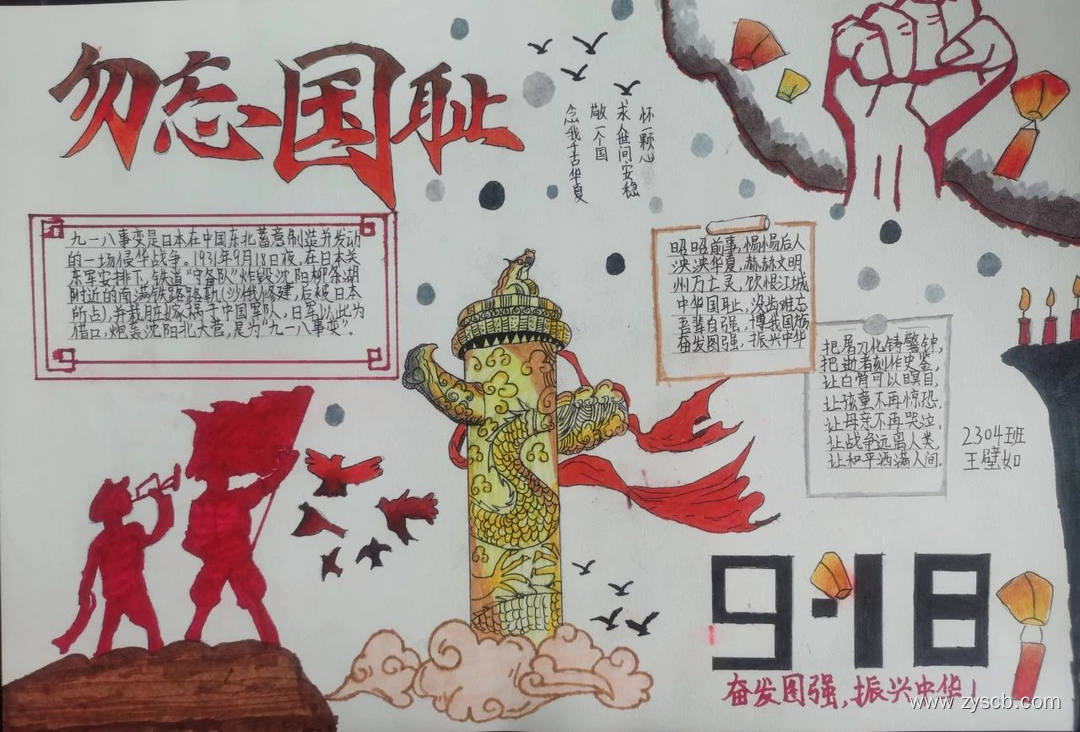 勿忘国耻
怀一颗心
求人世间安稳
敬一个国
念我千古华夏
九一八事变是日本在中国东北蓄意制造并发动
的一场侵华战争。1931年9月18日夜,在日本关
东军安排下,铁道“守备队”炸毁沈阳柳条湖
附近的南满铁路路轨(沙俄修建,后被日本
所占),并栽赃嫁祸于中国军队,日军以此为
借口,炮轰沈阳北大营,是为“九一八事变”.
昭昭前事,惕惕后人
泱泱华夏,赫赫文明
州万士灵,饮恨江城
中华国耻,没齿难忘
吾辈自强,博我国饬
奋发图强,振兴中华
把屠刀化铸警钟,
把逝者刻作史鉴,
让白骨可以瞑目,
让孩童不再惊恐,
让母亲不再哭泣,
让战争远离人类,
让和平洒满人间.
2304班
王璧如
9·18
奋发图强,振兴中华!
www.zyscb.com